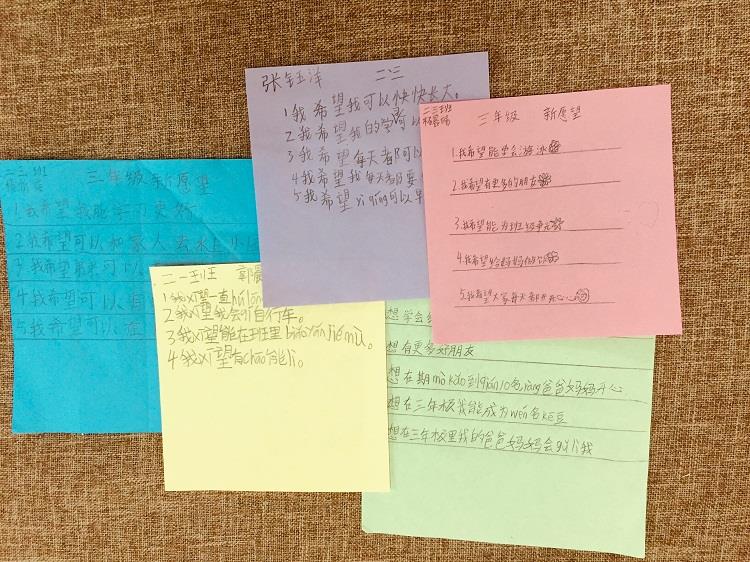 张钰洋 二三
1我希望我可以快快长大。
2我希望我的学
3我希望每天都可以
4我希望我每天都要
5我希望yì qíng可以早
二三班
三年级 新愿望
1.我希望能学会游泳
2.我希望有更多的朋友
3.我希望能为班级争光
4.我希望给妈妈做饭
5.我希望大家每天都开心
二三班
三年级新愿望
1.我希望我能学习更好
2.我希望可以和家人去水上乐园
3.我希望弟弟可以
4我希望可以有
5我希望可以在
二一班 郭晨
1我xī望一直
2我xī望我会qí自行车。
3我xī望能在班里biǎo yǎn jié mù。
4我xī望有chāo能lì。
想学会
想有更多好朋友
想在期mò kǎo到qián 10名ràng爸爸妈妈开心
想在三年级我能成为wén名
想在三年级里我的爸爸妈妈会gǔ lì我